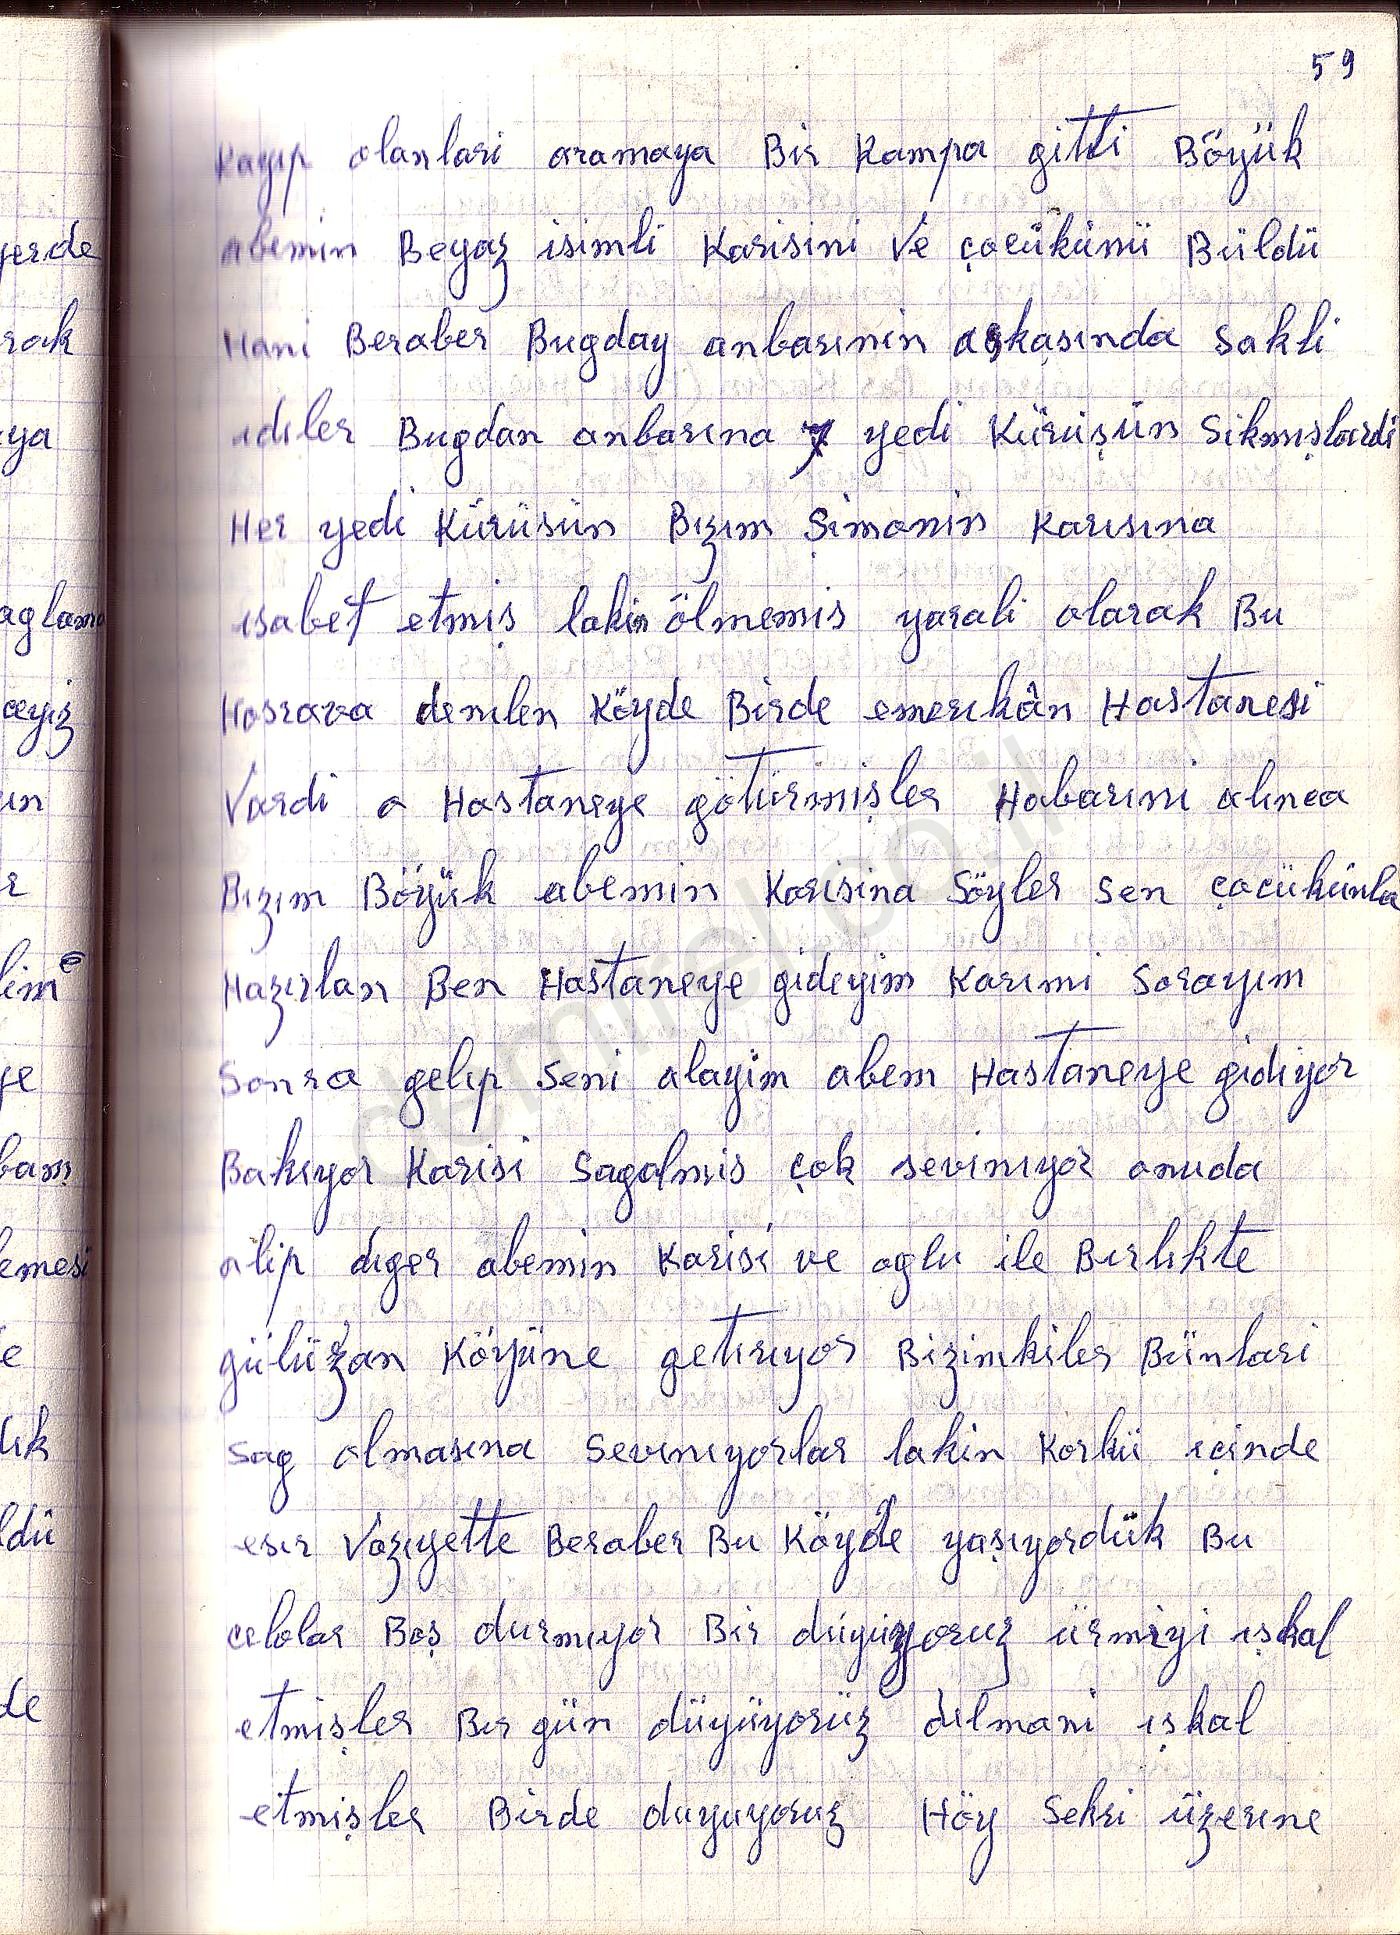 59
Kayıp olanlari aramaya Bir Kampa gitti Böyük
abemin Beyaz isimli Karisini Ve çocükünü Büldü
Hani Beraber Bugday anbarınin arkasında Sakli
idıler Bugdan anbarına 7 yedi Kürüşün Sikmışlardi
Her yedi Kürüsün Bızım Şimonin Karısına
ısabet etmiş lakin ölmemis yarali olarak Bu
Hosrava denılen Köyde Birde emerıkân Hastanesi
Vardi o Hastaneye götürmişler Habarıni alınca
Bızım Böyük abemin Karisina Söyler Sen çocükünla
Hazırlan Ben Hastaneye gideyim Karımi Sorayım
Sonra gelıp Seni alayim abem Hastaneye gidıyor
Bakıyor Karisi Sagalmis çok sevinıyor onuda
alip dıger abemin Karisi ve oglu ile Bırlıkte
gülüzan Köyüne getırıyor Bizimkiler Bünlari
Sag olmasına Sevınıyorlar lakin Korkü ıçinde
esır Vazıyette Beraber Bu Köyde yaşıyordük Bu
celolar Boş durmıyor Bir duyuyoruz ürmiyi ışkal
etmişler Bır gün düyüyorüz dılmani ışkal
etmişler Birde duyuyoruz Höy Sehri üzerıne
yerde
rak
ya
aglama
ceyiz
un
r
lime
ye
bam
emesi
e
lık
ldü
de
demirel.co.il